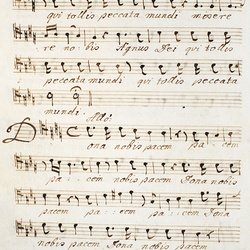 qui tollis peccata mundi misere
re nobis Agnus Dei qui tollis
peccata mundi qui tollis peccata
mundi.
Allo
Dona nobis pacem pa : cem
pa : cem nobis pacem Dona nobis
pacem pa : : cem pa : : cem
pa : cem nobis pacem pacem Dona
nobis pacem nobis pacem